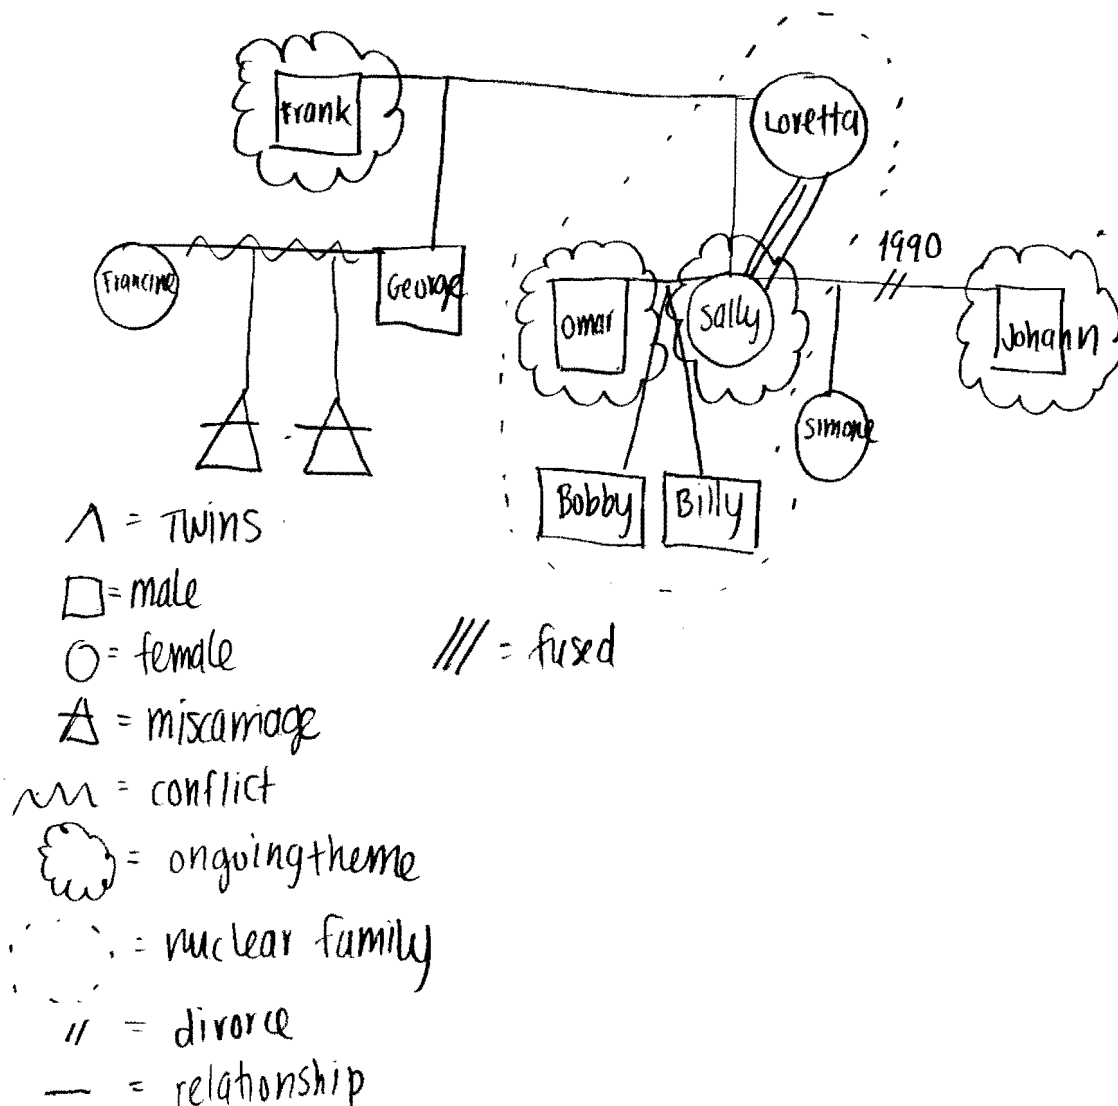 Frank
Loretta
1990
Francine
George
Omar
Sally
Johann
Simone
Bobby
Billy
= Twins
= male
= female
/// = fused
= miscarriage
= conflict
= ongoing theme
= nuclear family
// = divorce
— = relationship